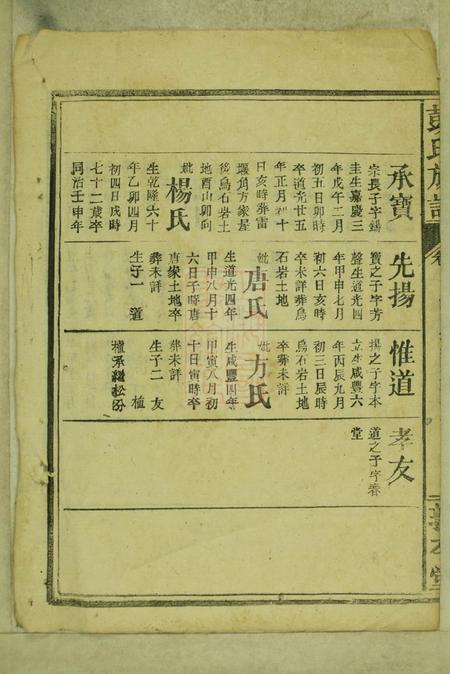 彭氏族譜
卷
承寶
宗長子字錫
圭生嘉慶三
年戊午二月
初五日卯時
卒道光廿五
年正月初十
日亥時葬雷
堰角方家屋
後烏石岩土
地酉山卯向
妣楊氏
生乾隆六十
年乙卯四月
初四日戌時
七十二歲卒
同治壬申年
先揚
寶之子字芳
聲生道光四
年甲申七月
初六日亥時
卒未詳葬烏
石岩土地
妣唐氏
生道光四年
甲申八月十
六日子時唐
唐家土地卒
葬未詳
生子一 道
惟道
揚之子字本
立生咸豐六
年丙辰九月
初三日辰時
烏石岩土地
卒葬未詳
妣方氏
生咸豐四年
甲寅八月初
十日寅時卒
葬未詳
生子二 友
植
植承繼松份
孝友
道之子字春
堂